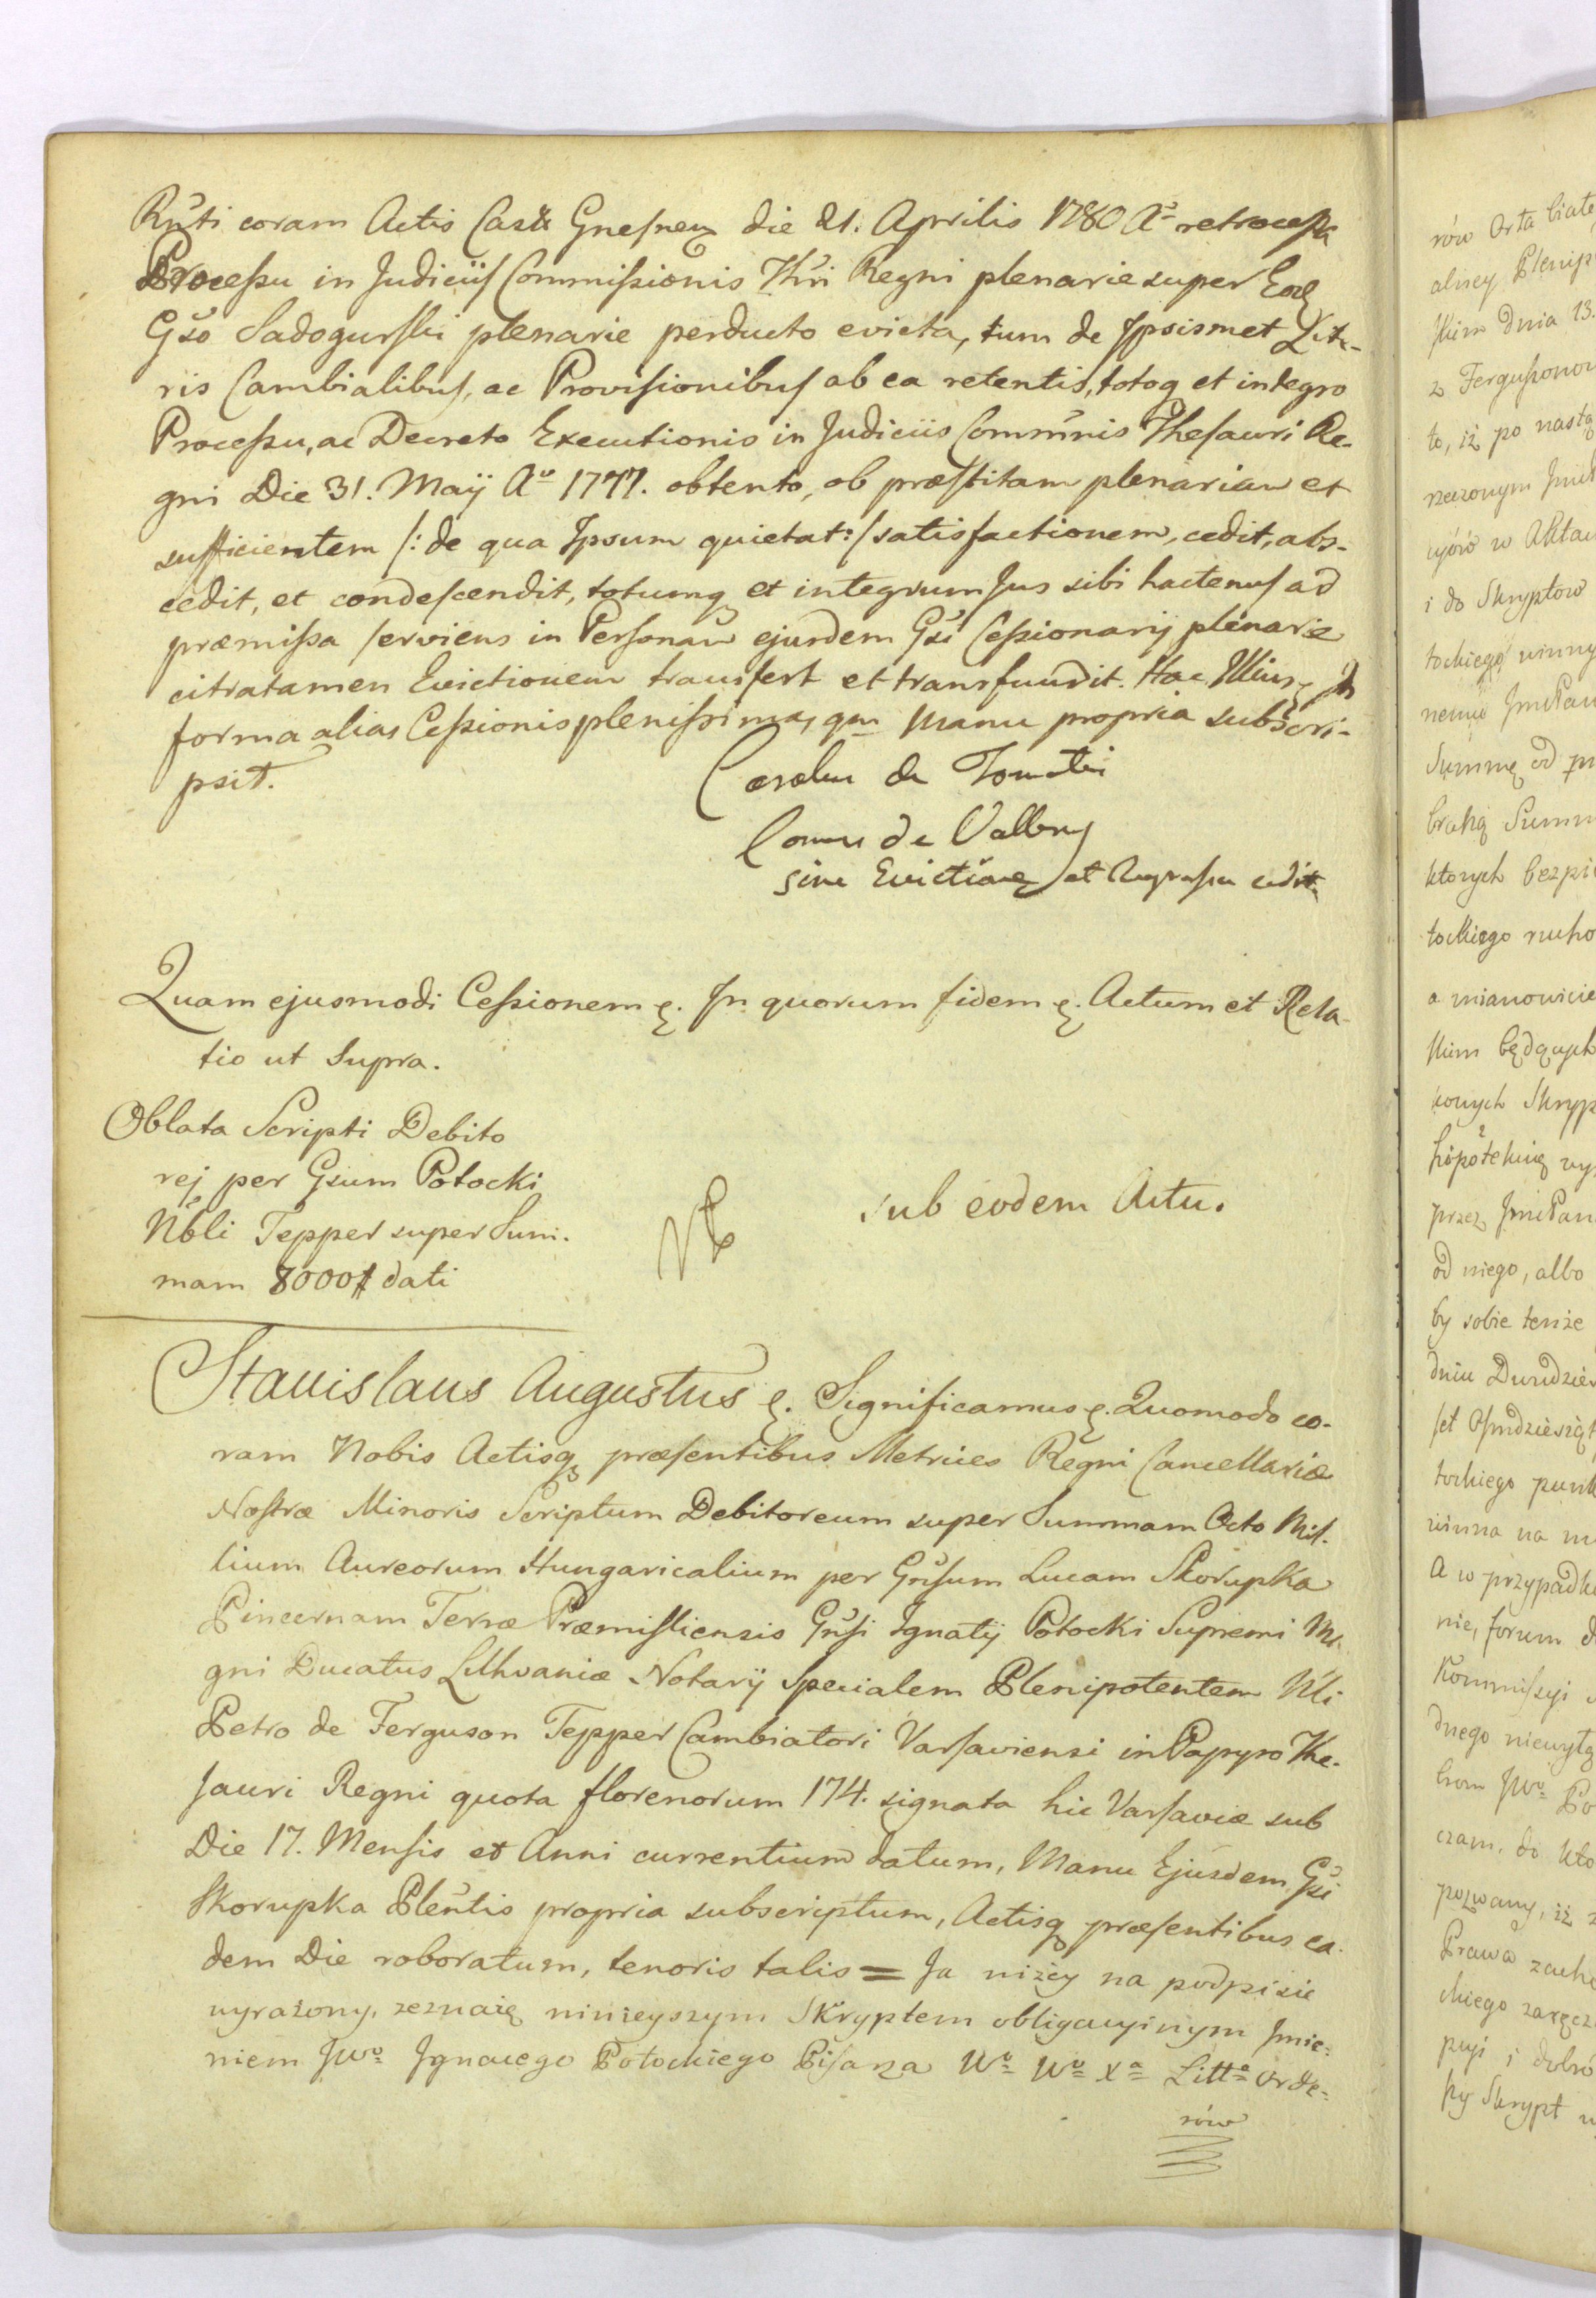 Rñti coram Actis Castr Gnesnen die 21. Aprilis 1780 Aº retrocessa
Processu in Judiciis Commissionis Thri Regni plenarie super Eodẽ
Gso Sadogurski plenarie perducto evicta, tum de Ipsismet Lite-
ris Cambialibus, ac Provisionibus ab ea retentis, totoq et integro
Processu, ac Decreto Executionis in Judiciis Commũnis Thesauri Re-
gni Die 31. Maÿ Aº 1777. obtento, ob præstitam plenariam et
sufficientem /: de qua Ipsum quietat :/ satisfactionem, cedit, abs-
cedit, et condescendit, totumq et integrum Jus sibi hactenus ad
præmissa serviens in Personam ejusdem Gsi Cessionarÿ plenarie
citra tamen Evictionem transfert et transfundit. Hac Illius
forma alias Cessionis plenissima, qm Manu propria subscri-
psit.
Carolus de
Comes de
sine Evictione et Regressu cedit
Quam ejusmodi Cessionem &. In quorum fidem &. Actum et Rela-
tio ut Supra.
Oblata Scripti Debito
rej per Gsum Potocki
Nbli Tepper super Sum-
mam 8000# dati
sub eodem Actu.
Stanislaus Augustus &. Significamus &. Quomodo co-
ram Nobis Actisq præsentibus Metrices Regni Cancellariæ
Nostræ Minoris Scriptum Debitoreum super Summam Octo Mil-
lium Aureorum Hungaricalium per Gñsum Lucam Skorupka
Pincernam Terræ Præmisliensis Gñsi Ignatÿ Potocki Supremi Ma-
gni Ducatus Lithvaniæ Notarÿ Specialem Plenipotentem Nbli
Petro de Ferguson Tepper Cambiatori Varsaviensi in Papyro The-
sauri Regni quota florenorum 174. signata hic Varsaviæ sub
Die 17. Mensis et Anni currentium datum, Manu Ejusdem Gsi
Skorupka Plentis propria subscriptum, Actisq præsentibus ea-
dem Die roboratum, tenoris talis = Ja niżey na podpisie
wyrażony, zeznaię ninieyszym Skryptem obligacyinym Jmie-
niem JWº Jgnacego Potockiego Pisarza Wº Wº Xª Littº Orde-
rów
rów Orła białe
alney Plenip
skim Dnia 13.
z Fergussonow
to, iż po nastą
rzeczonym
w Aktac
i do Skryptow
tockiego winny
Summę od
Summ
ktorych bezpi
tockiego ruho
a mianowicie
skim będących
Skryp
hipotekuię wy
przez JmćPan
od niego, albo
by sobie tenże
dniu Dwudzies
set Osmdziesiąt
tockiego punk
winna na
A w przypadk
nie, forum
Kommissyi
dnego
Po
czam, do kto
pozwany, iż z
Prawa zacho
ckiego zaręcz
i dobro
szy Skrypt